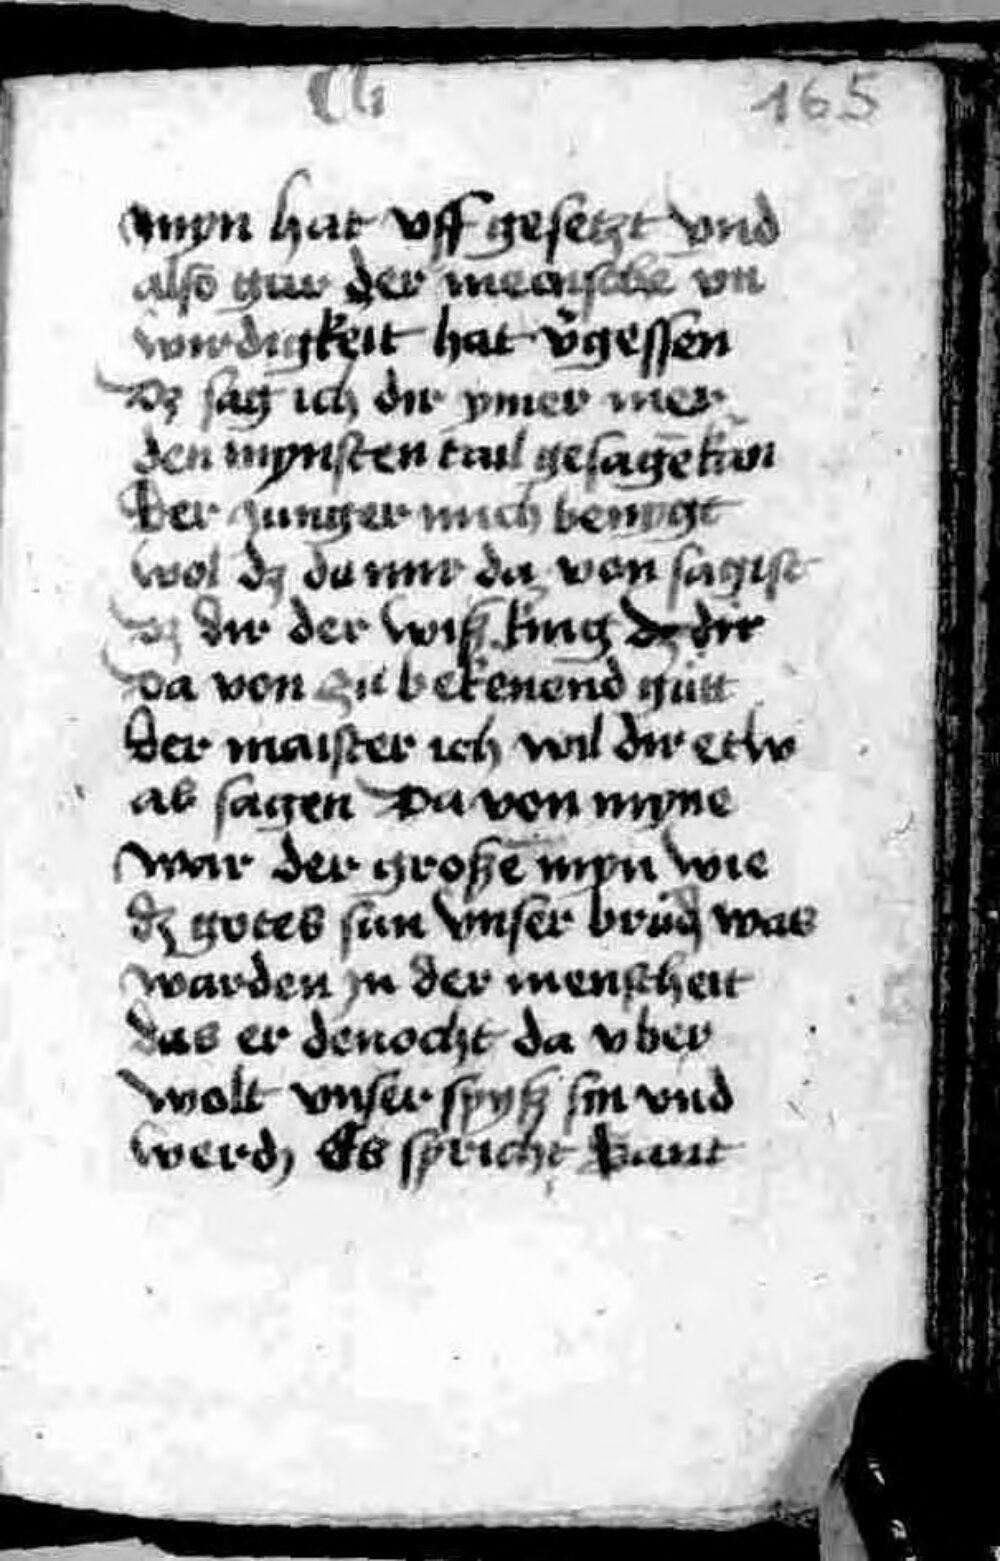 165
myn hat vff gesetzt vnd
also gar der menschē vn
wirdigkeit hat v̄gessen
dz sag ich dir ymer mer
den mynsten tail gesagē kan
Der Junger mich
wol dz du mir da von sagist
dz dir der dz dir
da von zu bekenend
Der maister ich wil dir etw
as sagen Da von myne
war der große myn wie
dz gotes sun vnser brud was
warden Jn der menscheit
das er denocht da vber
wolt vnser spyß sin vnd
werdn Es spricht Sant